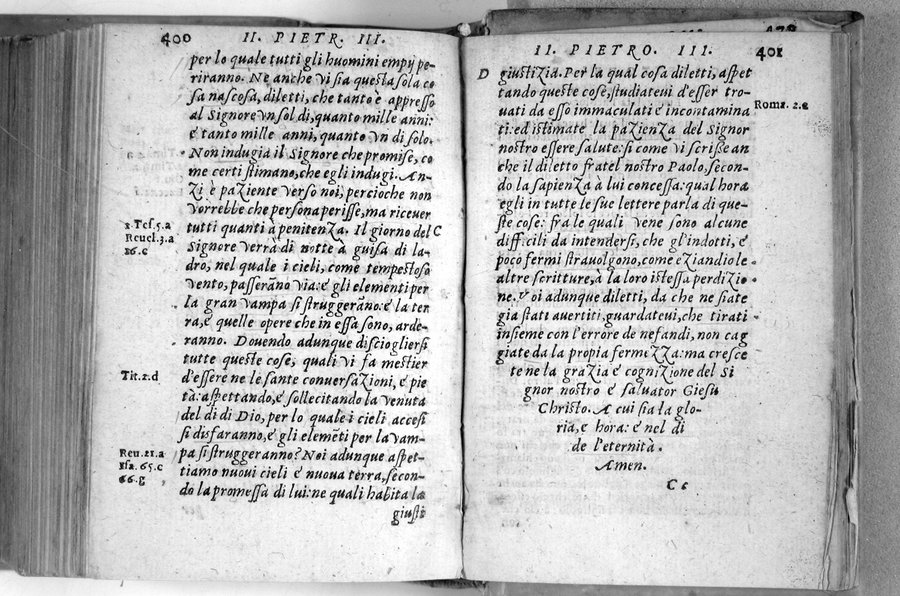 400 II. PIETR. III.
per lo quale tutti gli huomini empij pe-
riranno. Ne anche vi sia questa sola co
sa nascosa, diletti, che tanto è appresso
al Signore vn sol di, quanto mille anni:
e tanto mille anni, quanto vn di solo.
Non indugia il Signore che promise, co
me certi stimano, che egli indugi. An-
zi è paziente verso noi, percioche non
vorrebbe che persona perisse, ma riceuer
tutti quanti à penitenza. Il giorno del C
1. Tes. 5. a
Signore verrà di notte a guisa di la-
Reuel. 3. a
16. c
dro, nel quale i cieli, come tempestoso
vento, passerãno via: e gli elementi per
la gran vampa si struggerãno: e la ter
ra, e quelle opere che in essa sono, arde-
ranno. Douendo adunque disciogliersi
tutte queste cose, quali vi fa mestier
d'essere ne le sante conuersazioni, e pie
Tit. 2. d
tà: aspettando, e sollecitando la venuta
del di di Dio, per lo quale i cieli accesi
si disfaranno, e gli elemẽti per la vam-
pa si struggeranno? Noi adunque aspet-
Reu. 21. a
Isa. 65. c
66. g
tiamo nuoui cieli e nuoua terra, secon-
do la promessa di lui: ne quali habita la
giusti
II. PIETRO. III. 401
D giustizia. Per la qual cosa diletti, aspet
tando queste cose, studiateui d'esser tro-
uati da esso immaculati e incontamina
Roma. 2. a
ti: ed istimate la pazienza del Signor
nostro essere salute: si come vi scrisse an
che il diletto fratel nostro Paolo, secon-
do la sapienza à lui concessa: qual hora
egli in tutte le sue lettere parla di que-
ste cose: fra le quali vene sono alcune
difficili da intendersi, che gl'indotti, e
poco fermi strauolgono, come eziandio le
altre scritture, à la loro istessa perdizio-
ne. Voi adunque diletti, da che ne siate
gia stati auertiti, guardateui, che tirati
insieme con l'errore de nefandi, non cag
giate da la propia fermezza: ma cresce
te ne la grazia e cognizione del Si
gnor nostro e saluator Giesu
Christo. A cui sia la glo-
ria, e hora: e nel di
de l'eternità.
Amen.
C 6